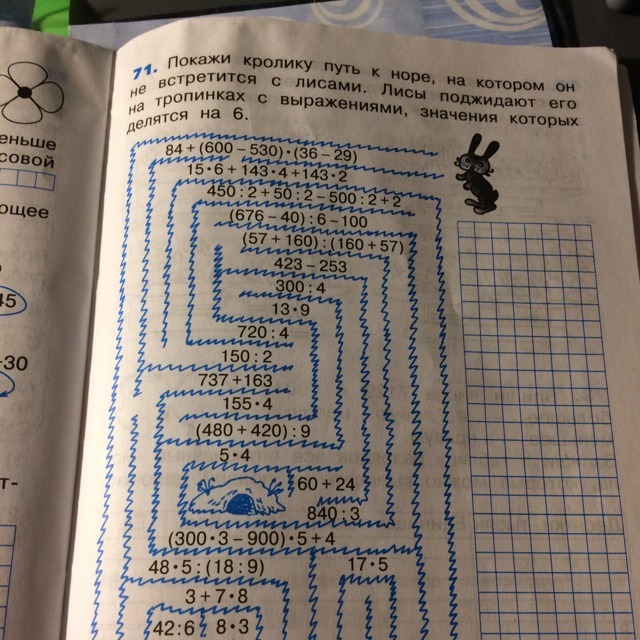 71. Покажи кролику путь к норе, на котором он
не встретится с лисами. Лисы поджидают его
на тропинках с выражениями, значения которых
делятся на 6.
84 + (600 − 530) · (36 − 29)
15 · 6 + 143 · 4 + 143 · 2
450 : 2 + 50 : 2 − 500 : 2 + 2
(676 − 40) : 6 − 100
(57 + 160) : (160 + 57)
423 − 253
300 : 4
13 · 9
720 : 4
150 : 2
737 + 163
155 · 4
(480 + 420) : 9
5 · 4
60 + 24
840 : 3
(300 · 3 − 900) · 5 + 4
48 · 5 : (18 : 9)
17 · 5
3 + 7 · 8
42 : 6
8 · 3
45
30